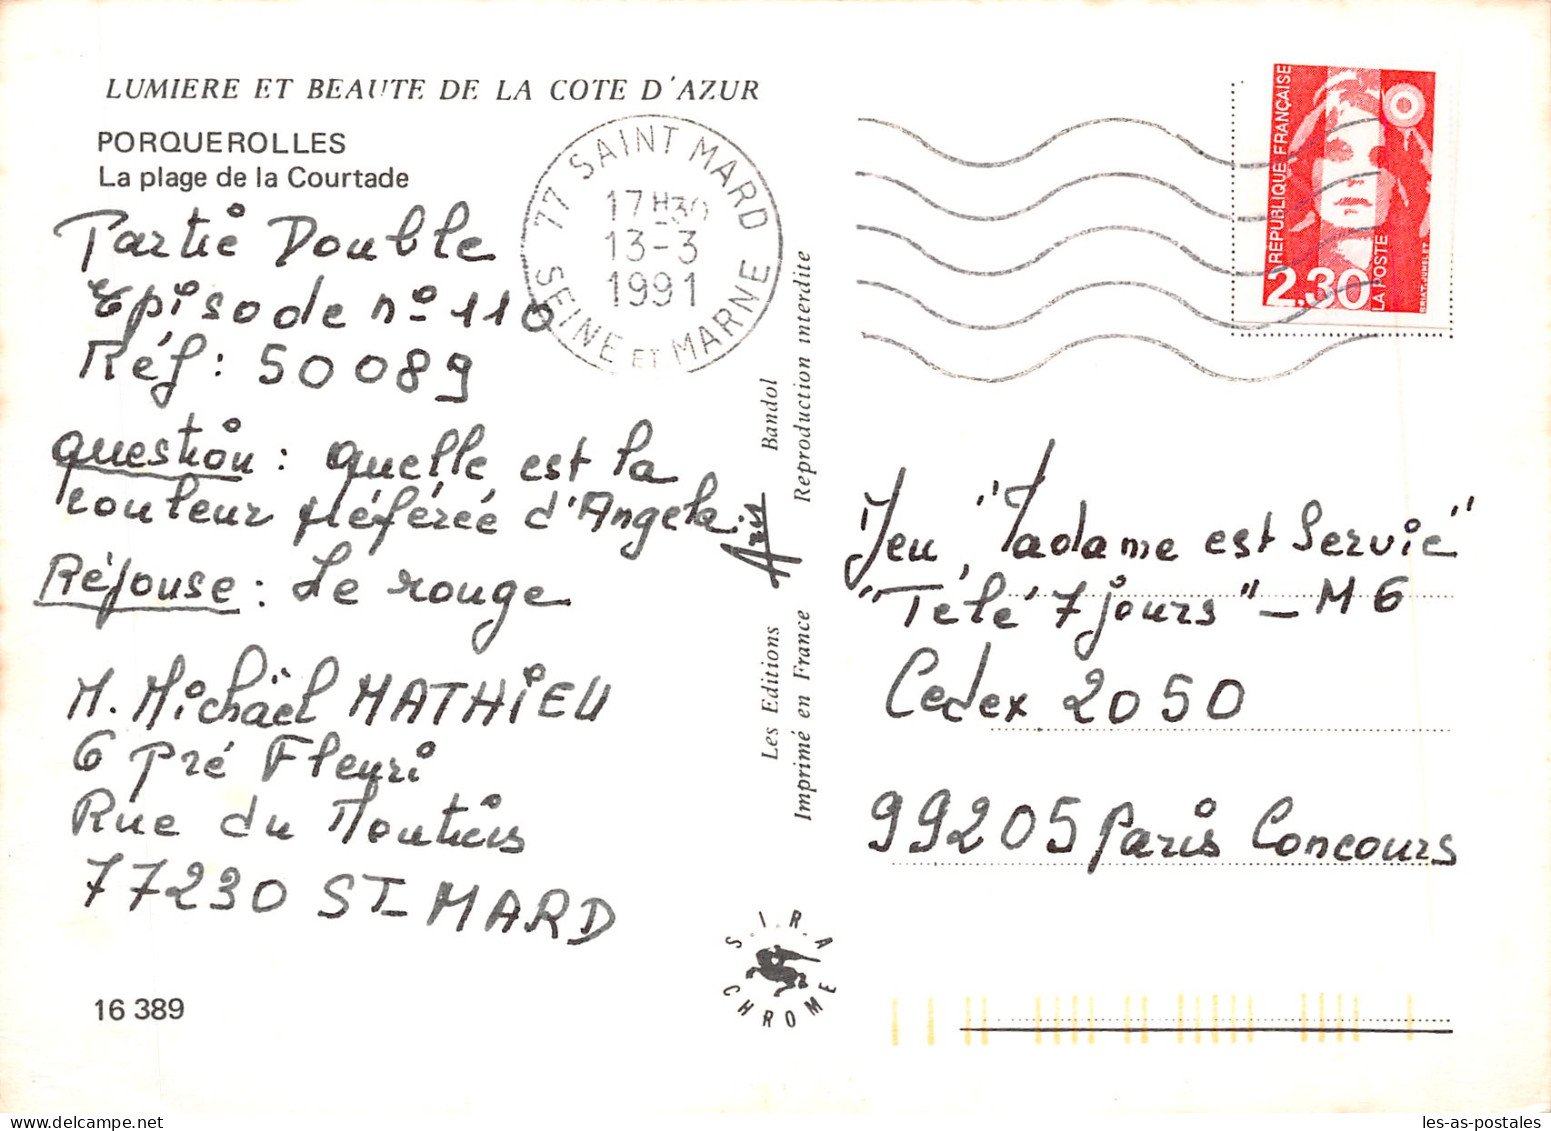 LUMIERE ET BEAUTE DE LA COTE D'AZUR
PORQUEROLLES
La plage de la Courtade
Partie Double
Episode n° 110
Réf : 50089
question : quelle est la
couleur préférée d'Angela.
Réponse : Le rouge
M. Michaël MATHIEU
6 Pré Fleuri
Rue du Moutiers
77230 ST-MARD
16 389
77 SAINT MARD
17H30
13-3
1991
SEINE ET MARNE
Les Editions Azur Bandol
Imprimé en France Reproduction interdite
S.I.R.A
CHROME
RÉPUBLIQUE FRANÇAISE
2.30
LA POSTE
BRIAT.JUMELET
Jeu "Madame est Servie"
"Télé 7 jours" - M6
Cedex 2050
99205 Paris Concours
les-as-postales